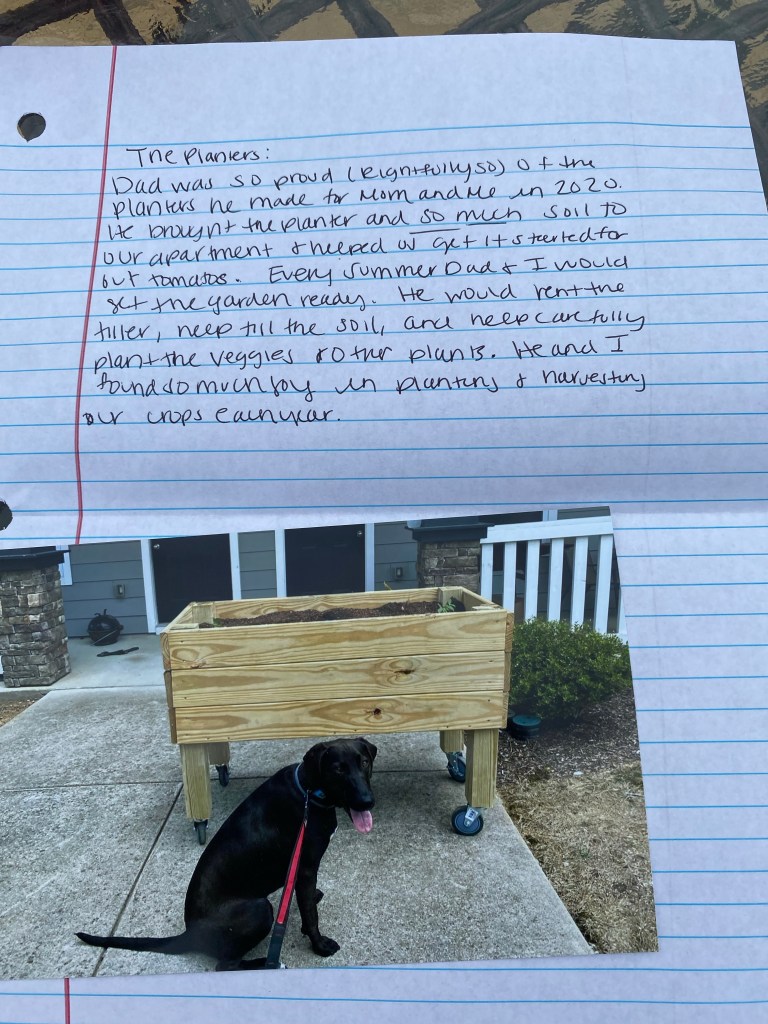 The Planters:
Dad was so proud (Rightfully so) of the
planters he made for Mom and Me in 2020.
He brought the planter and so much soil to
our apartment & helped us get it started for
our tomatos. Every summer Dad & I would
get the garden ready. He would rent the
tiller, help till the soil, and help carefully
plant the veggies & other plants. He and I
found so much joy in planting & harvesting
our crops each year.